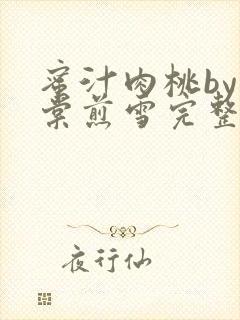 蜜汁肉桃by
棠煎雪完整
夜行仙